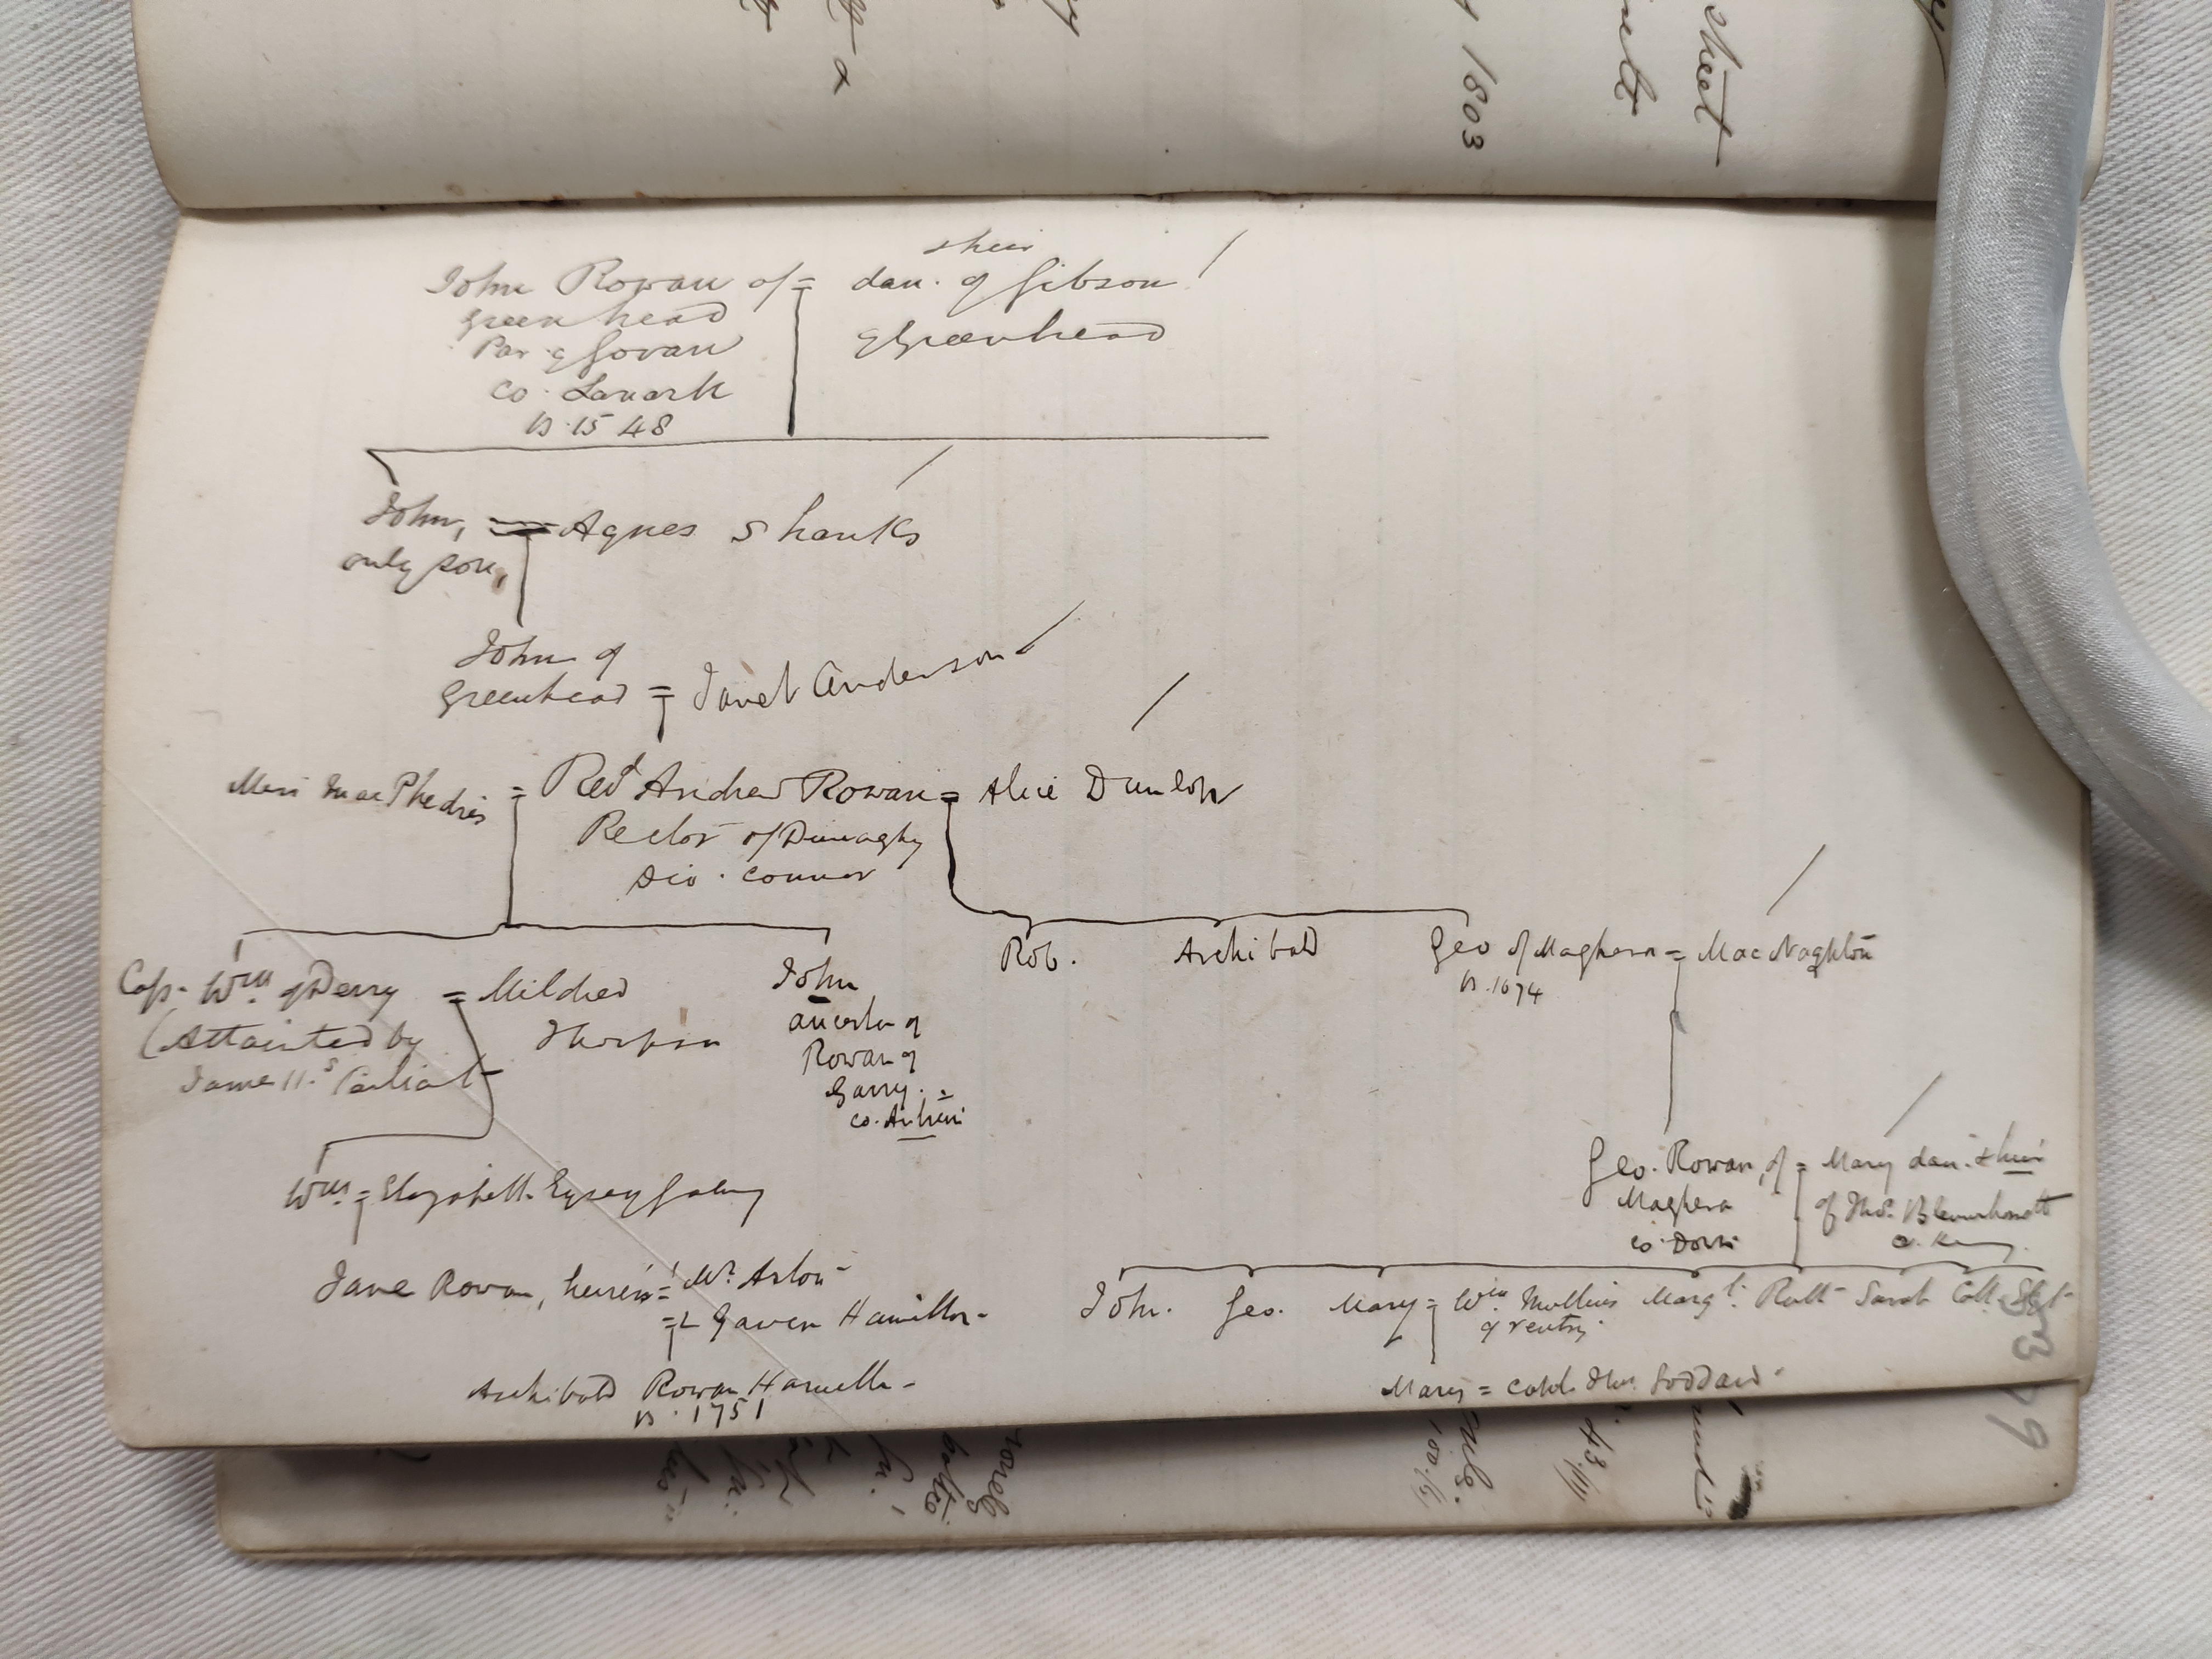 sheet
1803
& heir
John Rowan of = dau. of Gibson
Greenhead
of Greenhead
Par. of Govan
Co. Lanark
b. 1548
John, = Agnes Shanks
only son,
John of
Greenhead = Janet Anderson
Miss MacPhedris = Revd Andrew Rowan = Alice Dunlop
Rector of Dunaghy
Dio. Connor
Rob. Archibald Geo of Maghera = MacNaghton
b. 1674
Capt. Wm of Derry = Mildred
(Attainted by
Thompson
James II.s Parliat
John
ancestor of
Rowan of
Garry.
co. Antrim
Wm = Elizabeth Eyrey
Geo. Rowan, of = Mary dau. & heir
Maghera
of Thos. Blennerhassett
co. Derry
Co. Kerry
Jane Rowan, heiress = Mr. Aston
= 2 Gawen Hamilton
John. Geo. Mary = Wm. Mullins Margt. Ruth Sarah
of Ventry
Archibald Rowan Hamilton
b. 1751
Mary = Capt. Thos. Goddard
379